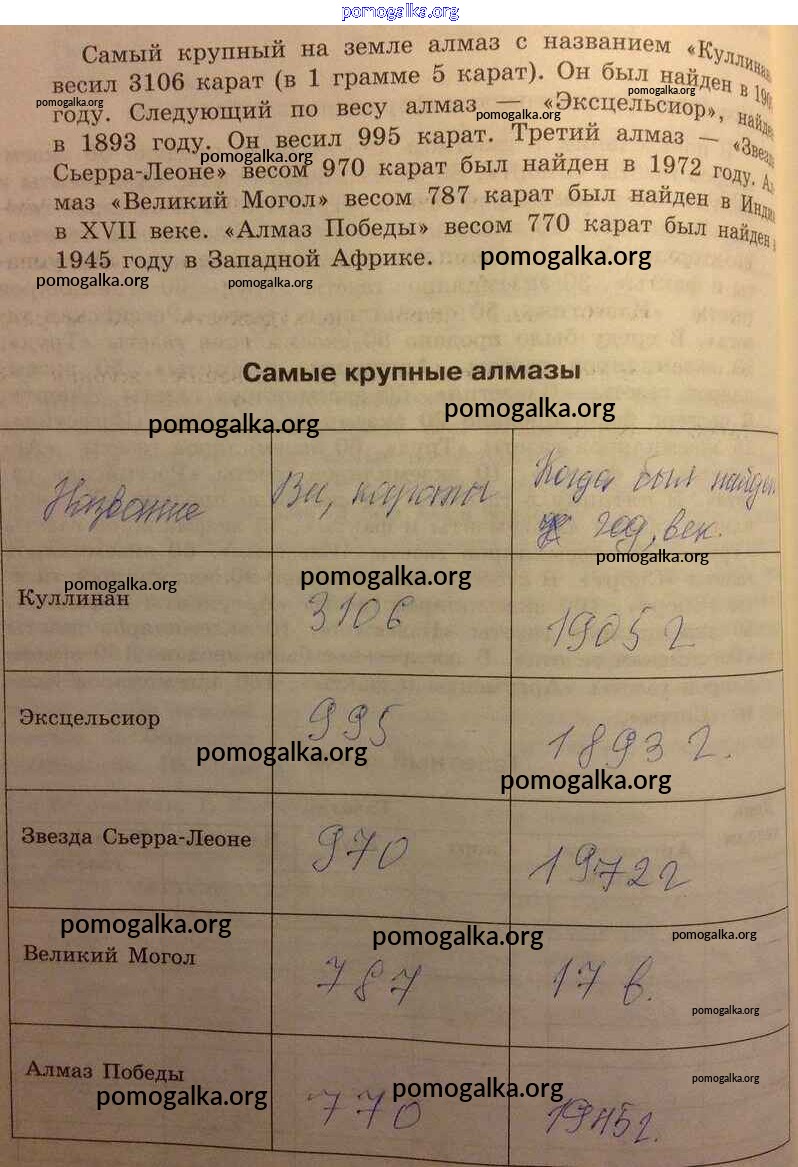 pomogalka.org
Самый крупный на земле алмаз с названием «Куллинан
весил 3106 карат (в 1 грамме 5 карат). Он был найден в
pomogalka.org pomogalka.org
году. Следующий по весу алмаз — «Эксцельсиор»,
pomogalka.org
в 1893 году. Он весил 995 карат. Третий алмаз —
pomogalka.org
Сьерра-Леоне» весом 970 карат был найден в 1972 году.
маз «Великий Могол» весом 787 карат был найден в
в XVII веке. «Алмаз Победы» весом 770 карат был найден
1945 году в Западной Африке. pomogalka.org
pomogalka.org pomogalka.org
Самые крупные алмазы
pomogalka.org pomogalka.org
Название Вес, караты Когда был найден
год, век.
pomogalka.org
pomogalka.org pomogalka.org
Куллинан 3106 1905 г
Эксцельсиор 995 1893 г.
pomogalka.org pomogalka.org
Звезда Сьерра-Леоне 970 1972 г
pomogalka.org pomogalka.org pomogalka.org
Великий Могол 787 17 в.
pomogalka.org
Алмаз Победы 770 1945 г.
pomogalka.org pomogalka.org pomogalka.org